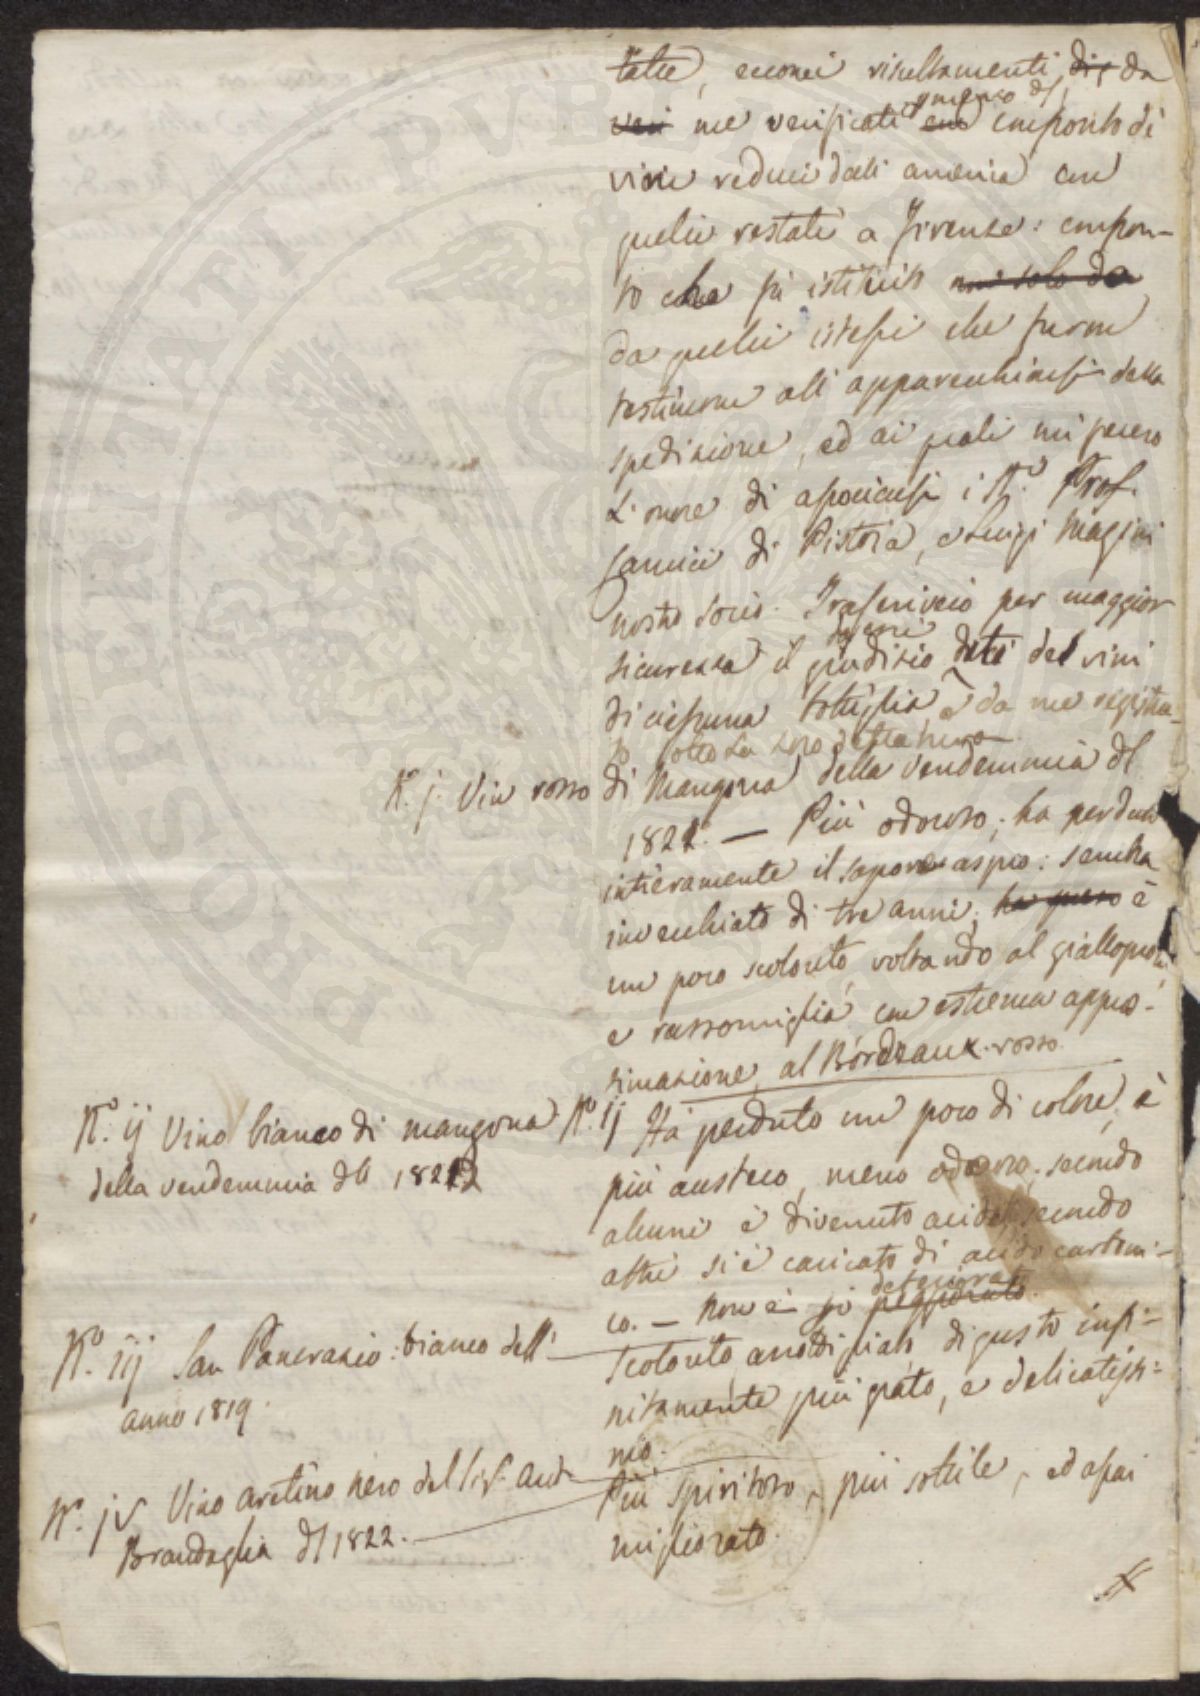 PROSPERITATI PVBLICAE
tatu, eccomi risultamenti, di, da
veri me verificati confronto di
vini reduci dall'america con
quelli restati a Firenze: confron-
to che fu istituito non solo da
da quelli istessi che furon
testimoni all'apparecchiarsi della
spedizione, ed ai quali mi fecero
l'onore di associarsi i Sig.i Prof.
di Pistoia, e Luigi Magini
nostro socio. Trascriverò per maggior
sicurezza il giudizio dati dei vini
di ciascuna bottiglia e da me registra-
to sotto la loro dettatura
N.o j. Vin rosso di Mangona della Vendemmia del
1821. — Più odoroso; ha perduto
intieramente il sapore aspro: sembra
invecchiato di tre anni; ha preso è
un poco scolorito, voltando al giallognolo
e rassomiglia con estrema appros-
simazione al Bordeaux rosso.
N.o ij Vino bianco di mangona
della vendemmia del 1822
N.o ij Ha perduto un poco di colore, è
più austero, meno odoroso; secondo
alcuni è divenuto acido, secondo
altri si è caricato di acido carboni-
co. — Non è deteriorato peggiorato.
N.o iij San Pancrazio: bianco dell'
anno 1819.
Scolorito, di gusto infi-
nitamente più grato, e delicatissi-
mo.
N.o jv Vino aretino nero del Sig.r Ant.
Brandaglia del 1822.
Più spiritoso, più sottile, ed assai
migliorato.